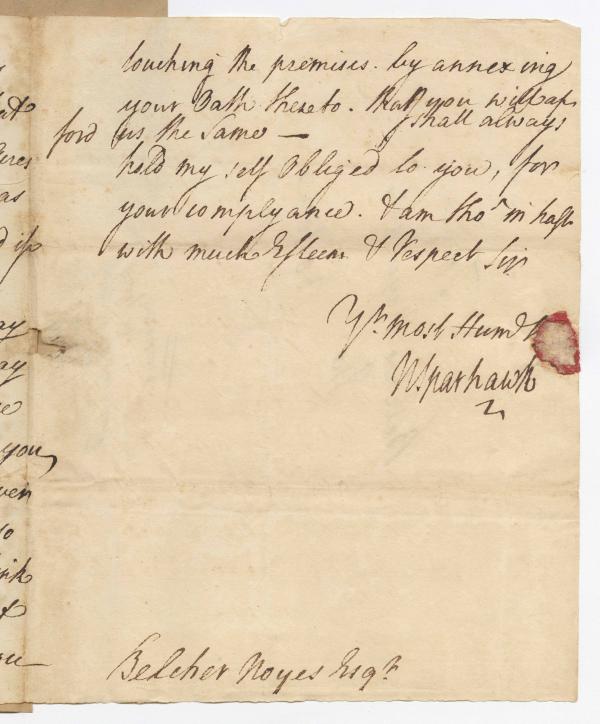 touching the premises. by annexing
your Oath thereto. that you will af
ford us the Same — shall always
hold my self Obliged to you, for
your complyance. & am tho' in hast
with much Esteem & Respect Sir
Yr. most Humb
NSparhawk
Belcher Noyes Esqr
ay
ay
you,
ven
so